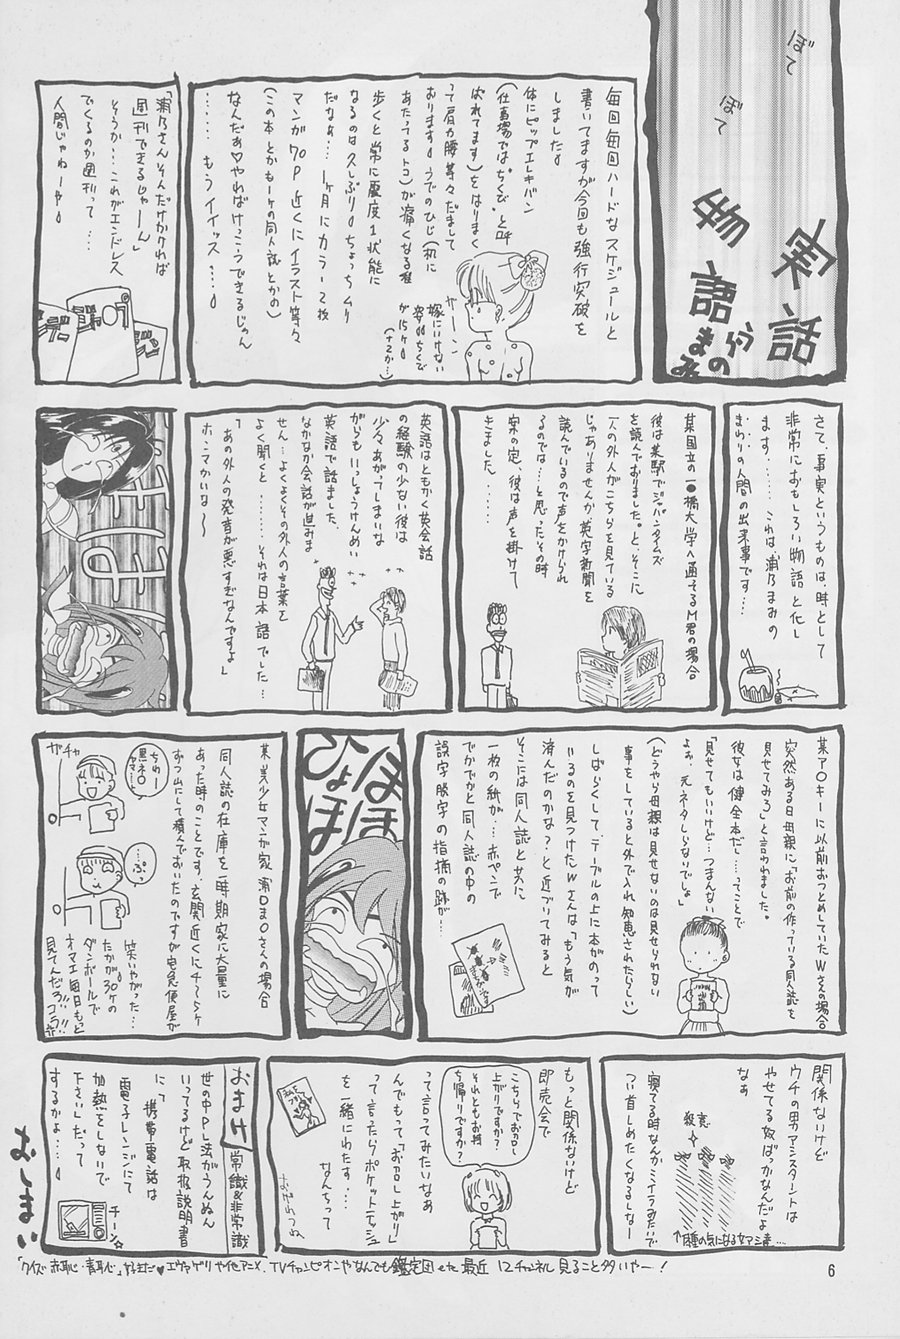 ぼて
ぼて
実話
物語
浦乃
まみの
毎回毎回ハードなスケジュールと
書いてますが今回も強行突破を
しました。
体にピップエレキバン
(仕事場では“ちくび”と呼
ばれてます)をはりまく
って肩力腰等々だまして
おります。うでのひじ(机に
あたってるトコ)が痛くなる程
歩くと常に震度1状態に
なるのは久しぶり。ちょっちムリ
だなぁ…。1ヶ月にカラー2枚
マンガ70P近くにイラスト等々
(この本とかもー1ヶの同人誌とかの)
なんだぁ♡やればけっこうできるじゃん
……もうイイッス…。
サーン
嫁にいけない
ちくびで
が15ヶ。
(+2か…)
「浦乃さんそんだけかければ
週刊できるじゃーん」
そうか…これがエンドレス
でくるのか週刊って…
人間じゃねーや。
さて、事実というものは、時として
非常におもしろい物語と化し
ます……これは浦乃まみの
まわりの人間の出来事です…
某国立の一●橋大学へ通ってるM君の場合
彼は某駅でジャパンタイムズ
を読んでおりました。と、そこに
一人の外人がこちらを見ている
じゃありませんか英字新聞を
読んでいるので声をかけられ
るのでは…と思ったその時
案の定、彼は声を掛けて
きました……
英語はともかく英会話
の経験の少ない彼は
少々あがってしまいな
がらもいっしょうけんめい
英語で話ました。
なかなか会話が進みま
せん…よくよくその外人の言葉を
よく聞くと……それは日本語でした…
「あの外人の発音が悪すぎなんですよ」
ホンマかいな〜
某ア○キーに以前おつとめしていたWさんの場合
突然ある日母親に「お前の作っている同人誌を
見せてみろ」と言われました。
彼女は健全本だし…ってことで
「見せてもいいけど…つまんない
よぉ、元ネタしらないでしょ」
(どうやら母親は見せないのは見せられない
事をしていると外で入れ知恵されたらしい)
しばらくして、テーブルの上に本がのって
いるのを見つけたWさんは「もう気が
済んだのかな?」と近づいてみると
そこには同人誌と共に
一枚の紙が…赤ペンで
でかでかと同人誌の中の
誤字脱字の指摘の跡が…
ほほ
ひょほ
某、美少女マンガ家浦○ま○さんの場合
同人誌の在庫を一時期家に大量に
あった時のことです。玄関近くに4〜5ヶ
ずつ山にして積んでおいたのですが宅急便屋が
ガチャ
ちわー
黒ネ○
ヤマ…ト
…ぷ
笑いやがった…
たかが30ヶの
ダンボールで
オマエ毎日もっと
見てんだろ!!コラ!!
関係ないけど
ウチの男アシスタントは
やせてる奴ばっかなんだよ
なぁ
寝てる時なんかミイラみたいで
つい首しめたくなるしなー
殺意
↑腫の気になる女アシ達…
もっと関係ないけど
即売会で
こちらでお召し
上がりですか?
それともお持
ち帰りですか?
って言ってみたいなぁ
んでもって「お召し上がり」
って言ったらポケットティッシュ
を一緒にわたす…
なんちって
おま○
常識&非常識
世の中PL法がうんぬん
いってるけど取扱説明書
に
携帯電話は
電子レンジにて
加熱をしないで
下さいしだって
するかよ…。
チーン☆
おしまい
「クイズ赤恥・青恥」なまだ♥エヴァゲリや他アニメ、TVチャンピオンやなんでも鑑定団etc最近12チャンネル見ること多いやー!
6